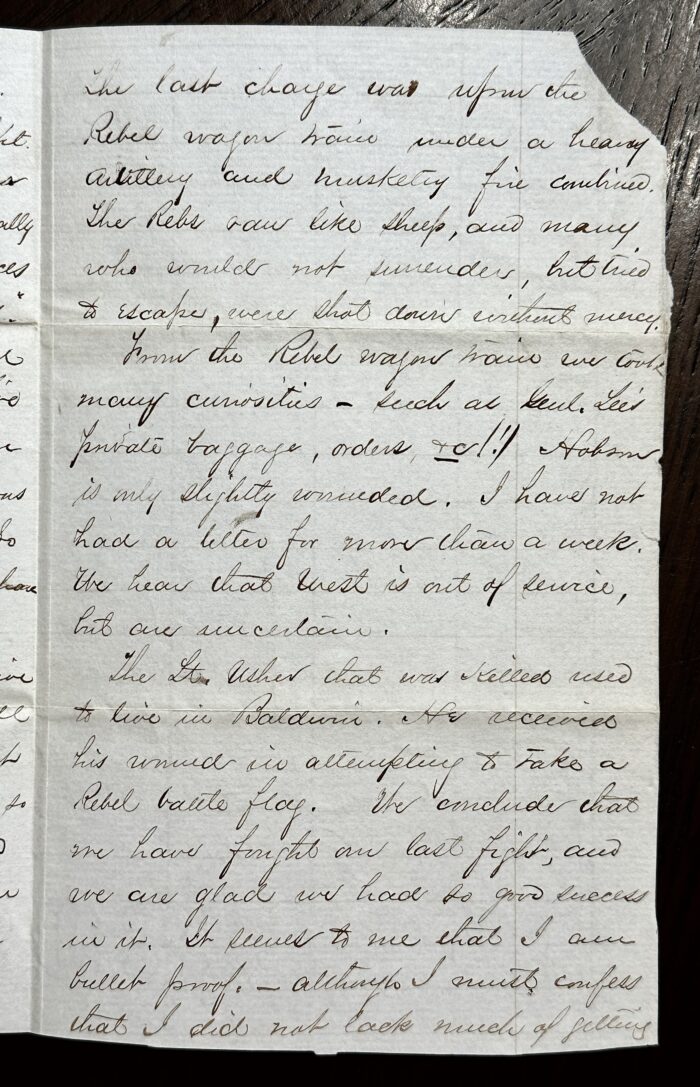 The last charge was upon the
Rebel wagon train under a heavy
artillery and musketry fire combined.
The Rebs ran like sheep, and many
who would not surrender, but tried
to escape, were shot down without mercy.
From the Rebel wagon train we took
many curiosities – such as Genl. Lee's
private baggage, orders, &c (!) Hobson
is only slightly wounded. I have not
had a letter for more than a week.
We hear that West is out of service,
but are uncertain.
The Lt. Usher that was killed used
to live in Baldwin. He received
his wound in attempting to take a
Rebel battle flag. We conclude that
we have fought our last fight, and
we are glad we had so good success
in it. It seems to me that I am
bullet proof. – although I must confess
that I did not lack much of getting